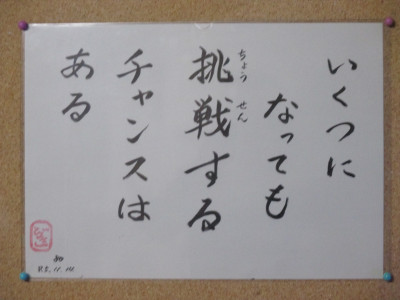 いくつに
なっても
挑戦する
ちょう
せん
チャンスは
ある